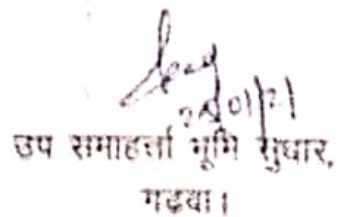 उप समाहर्त्ता भूमि सुधार,
गढवा।